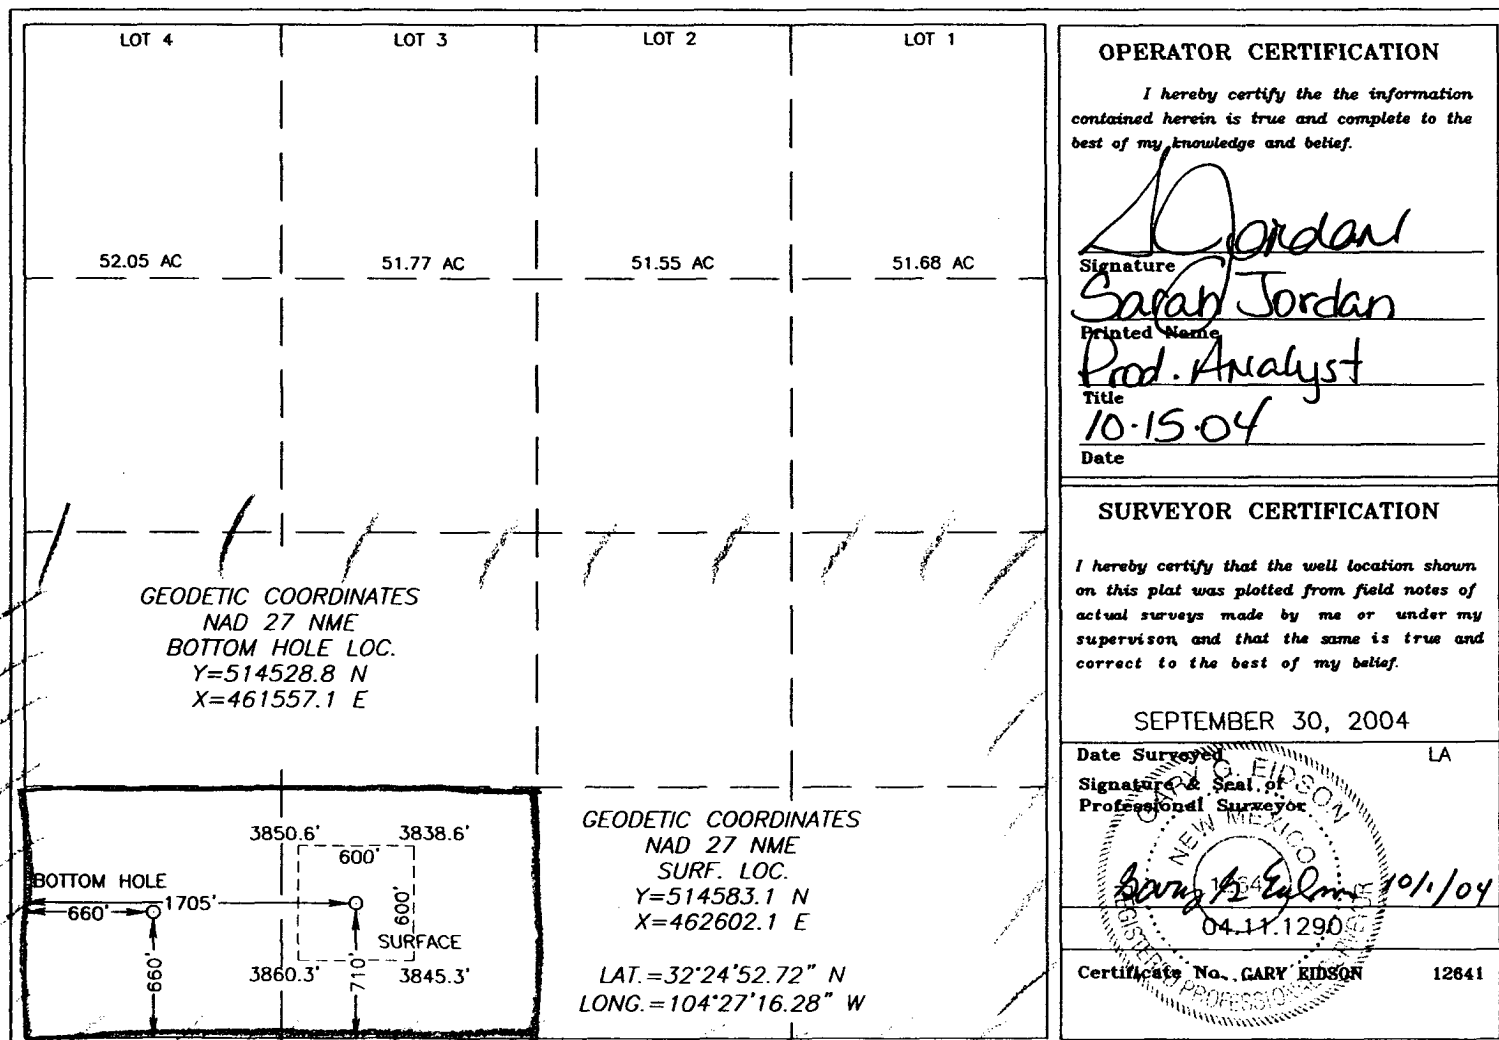 LOT 4
LOT 3
LOT 2
LOT 1
52.05 AC
51.77 AC
51.55 AC
51.68 AC
GEODETIC COORDINATES
NAD 27 NME
BOTTOM HOLE LOC.
Y=514528.8 N
X=461557.1 E
3850.6'
3838.6'
600'
600'
BOTTOM HOLE
660'
1705'
SURFACE
660'
710'
3860.3'
3845.3'
GEODETIC COORDINATES
NAD 27 NME
SURF. LOC.
Y=514583.1 N
X=462602.1 E
LAT.=32°24'52.72" N
LONG.=104°27'16.28" W
OPERATOR CERTIFICATION
I hereby certify the the information
contained herein is true and complete to the
best of my knowledge and belief.
S Jordan
Signature
Sarah Jordan
Printed Name
Prod. Analyst
Title
10.15.04
Date
SURVEYOR CERTIFICATION
I hereby certify that the well location shown
on this plat was plotted from field notes of
actual surveys made by me or under my
supervison, and that the same is true and
correct to the best of my belief.
SEPTEMBER 30, 2004
Date Surveyed
LA
Signature & Seal of
Professional Surveyor
GARY G. EIDSON
NEW MEXICO
10/1/04
04.11.1290
Certificate No. GARY EIDSON 12641